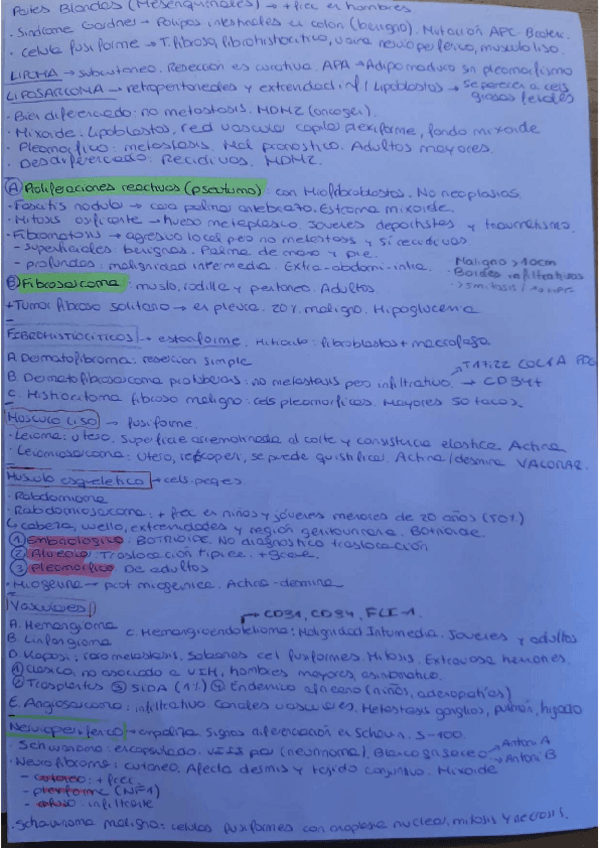 Partes Blandas (Mesenquimales) → + frec en hombres.
· Sindrome Gardner → Polipos intestinales en colon (benigno). Mutación APC-
· Celula fusiforme → T. fibroso, fibrohistiocitico, vaina nervio periférico, musculo liso.
LIPOMA → subcutaneo. Resección es curativa. APA → Adipo maduro sin pleomorfismo
LIPOSARCOMA → retroperitoneales y extremidad inf / Lipoblastos → Se parecen a cels
grasas fetales
· Bien diferenciado: no metastasis. MDM2 (oncogen).
· Mixoide: Lipoblastos, red vascular capilar plexiforme, fondo mixoide
· Pleomorfico: metastasis. Mal pronostico. Adultos mayores.
· Desdiferenciado. Recidivas. MDM2.
Ⓐ Proliferaciones reactivas (pseudotumo): con Miofibroblastos. No neoplasias.
· Fascitis nodular → cara palmar antebrazo. Estroma mixoide.
· Miositis osificante → hueso metaplasico. Jovenes deportistas y traumatismo.
· Fibromatosis → agresivo local pero no metastasis y sí recidivas
- superficiales: benignas. Palma de mano y pie.
- profundas: malignidad intermedia. Extra-abdomi-intra.
Maligno >10cm
· Bordes infiltrativos
Ⓑ Fibrosarcoma: muslo, rodilla y peritoneo. Adultos
+ Tumor fibroso solitario → en pleura. 20% maligno. Hipoglucemia
FIBROHISTIOCITICOS → estoriforme. Histiocito: fibroblastos + macrofago
A. Dermatofibroma: resección simple
B. Dermatofibrosarcoma protuberans: no metastasis pero infiltrativo. → CD34+
C. Histiocitoma fibroso maligno: cels pleomorficas. Mayores 50 tacos.
Musculo Liso → fusiforme.
· Leioma: utero. Superficie arremolinada al corte y consistencia elastica. Actina
· Leiomiosarcoma: Utero, retroperi, se puede quistificar. Actina/desmina VALORAR.
Musculo esqueletico → cels peques.
· Rabdomioma
· Rabdomiosarcoma: + frec en niños y jóvenes menores de 20 años (50%)
↳ cabeza, cuello, extremidades y región genitourinaria. Botroide.
① Embriologico: BOTROIDE. No diagnostico traslocación
② Alveolar: Traslocación tipica. + grave.
③ Pleomorfico: De adultos
· Miogenina → prot miogenica. Actina-desmina
Vasculares
→ CD31, CD34, FLI-1.
A. Hemangioma C. Hemangioendotelioma: Malignidad Intermedia. Jovenes y adultos
B. Linfangioma
D. Kaposi: rara metastasis. Sabanas cel fusiformes. Mitosis. Extravasa hematies.
① Clasico, no asociado a VIH, hombres mayores, asintomatico.
② Trasplantes ③ SIDA (1%) ④ Endemico africano (niños, adenopatías)
E. Angiosarcoma: infiltrativo. Canales vasculares. Metastasis ganglios, pulmón, hígado
Nervio periferico → empalma. Signos diferenciación en Schwan. S-100.
· Schwanoma: encapsulado. VIII par (neurinoma). Blanco grisaceo → Antoni A
→ Antoni B
· Neurofibroma: cutaneo. Afecta dermis y tejido conjuntivo. Mixoide
- cutaneo: + frec
- plexiforme (NF1)
- difuso: infiltrante
· Schwanoma maligno: celulas fusiformes con anaplasia nuclear, mitosis y necrosis.